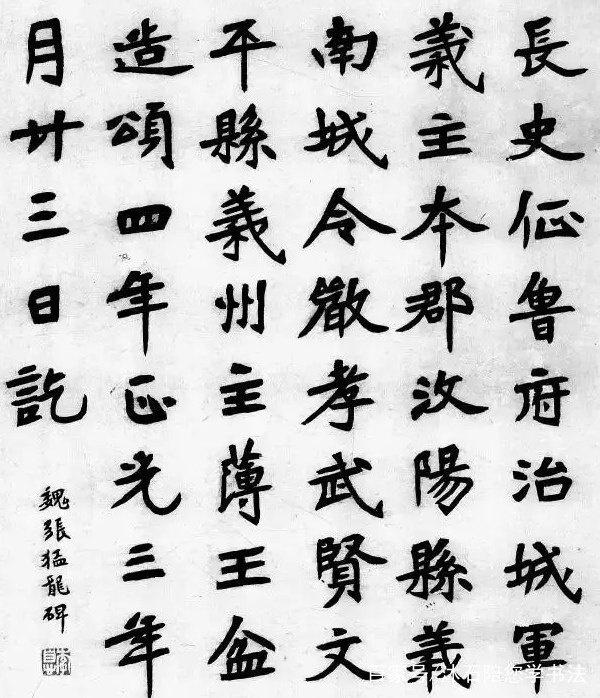 長史征魯府治城軍
義主本郡汶陽縣義
南城令嚴孝武賢文
平縣義州主薄王盆
造頌四年正光三年
月廿三日訖
魏張猛龍碑
百家号/冰石陪您学书法